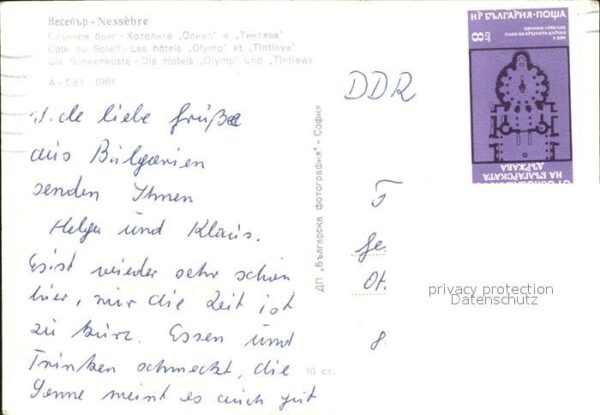 Несебър - Nessèbre
Слънчев бряг - Хотелите „Олимп" и „Тинтява"
Côte du Soleil - Les hôtels „Olymp" et „Tintiava"
Die Sonnenküste - Die Hotels „Olymp" und „Tintiawa"
А - 1961
liebe Grüße
aus Bulgarien
senden Ihnen
Helga und Klaus.
Es ist wieder sehr schön
hier, nur die Zeit ist
zu kurz. Essen und
Trinken schmeckt, die
Sonne meint es auch gut
10 ст.
ДП „Българска фотография" - София
DDR
НР БЪЛГАРИЯ·ПОЩА
8 СТ
НА БЪЛГАРСКАТА
ДЪРЖАВА
privacy protection
Datenschutz